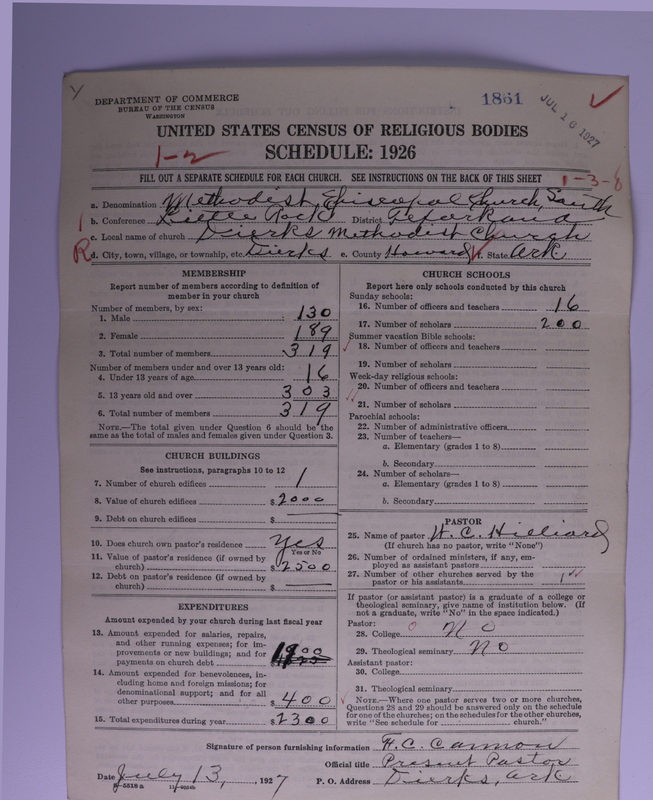 DEPARTMENT OF COMMERCE
BUREAU OF THE CENSUS
WASHINGTON
1851
JUL 16 1927
UNITED STATES CENSUS OF RELIGIOUS BODIES
SCHEDULE: 1926
1-2
FILL OUT A SEPARATE SCHEDULE FOR EACH CHURCH. SEE INSTRUCTIONS ON THE BACK OF THIS SHEET
1-3-8
a. Denomination Methodist Episcopal Church, South
b. Conference Little Rock District Texarkana
c. Local name of church Dierks Methodist Church
R d. City, town, village, or township, etc. Dierks e. County Howard f. State Ark
MEMBERSHIP
Report number of members according to definition of
member in your church
Number of members, by sex:
1. Male 130
2. Female 189
3. Total number of members 319
Number of members under and over 13 years old:
4. Under 13 years of age 16
5. 13 years old and over 303
6. Total number of members 319
NOTE.—The total given under Question 6 should be the
same as the total of males and females given under Question 3.
CHURCH BUILDINGS
See instructions, paragraphs 10 to 12
7. Number of church edifices 1
8. Value of church edifices $2000
9. Debt on church edifices $
10. Does church own pastor's residence yes
Yes or No
11. Value of pastor's residence (if owned by
church) $2500
12. Debt on pastor's residence (if owned by
church) $
EXPENDITURES
Amount expended by your church during last fiscal year
13. Amount expended for salaries, repairs,
and other running expenses; for im-
provements or new buildings; and for
payments on church debt $1900
14. Amount expended for benevolences, in-
cluding home and foreign missions; for
denominational support; and for all
other purposes $400
15. Total expenditures during year $2300
CHURCH SCHOOLS
Report here only schools conducted by this church
Sunday schools:
16. Number of officers and teachers 16
17. Number of scholars 200
Summer vacation Bible schools:
18. Number of officers and teachers
19. Number of scholars
Week-day religious schools:
20. Number of officers and teachers
21. Number of scholars
Parochial schools:
22. Number of administrative officers
23. Number of teachers—
a. Elementary (grades 1 to 8)
b. Secondary
24. Number of scholars—
a. Elementary (grades 1 to 8)
b. Secondary
PASTOR
25. Name of pastor W. C. Hilliard
(If church has no pastor, write "None")
26. Number of ordained ministers, if any, em-
ployed as assistant pastors
27. Number of other churches served by the
pastor or his assistants 1
If pastor (or assistant pastor) is a graduate of a college or
theological seminary, give name of institution below. (If
not a graduate, write "No" in the space indicated.)
Pastor:
28. College No
29. Theological seminary No
Assistant pastor:
30. College
31. Theological seminary
NOTE.—Where one pastor serves two or more churches,
Questions 28 and 29 should be answered only on the schedule
for one of the churches; on the schedules for the other churches,
write "See schedule for church."
Signature of person furnishing information F. C. Cannon
Official title Present Pastor
Date July 13, 1927 P. O. Address Dierks, Ark